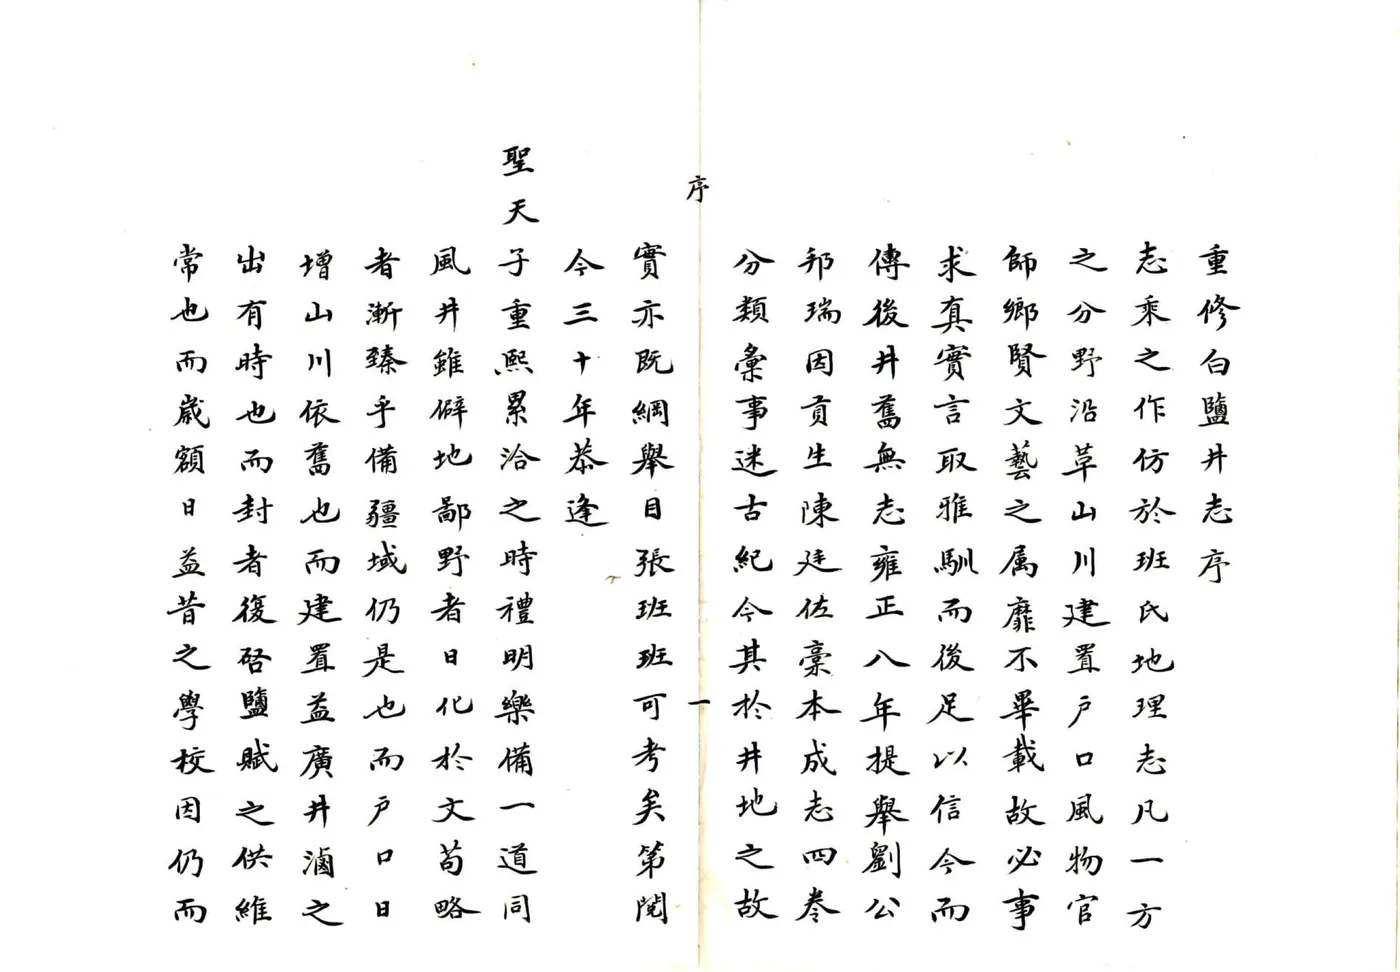 重修白鹽井志序
志乘之作仿於班氏地理志凡一方
之分野沿革山川建置户口風物官
師鄉賢文藝之属靡不畢載故必事
求真實言取雅馴而後足以信今而
傳後井舊無志雍正八年提舉劉公
邦瑞因貢生陳廷佐稾本成志四卷
分類彙事迷古紀今其於井地之故
序
一
實亦既綱舉目張班班可考矣第閱
今三十年恭逢
聖天子重熙累洽之時禮明樂備一道同
風井雖僻地鄙野者日化於文茍略
者漸臻乎備疆域仍是也而户口日
增山川依舊也而建置益廣井滷之
出有時也而封者復啓鹽賦之供維
常也而歲額日益昔之學校因仍而